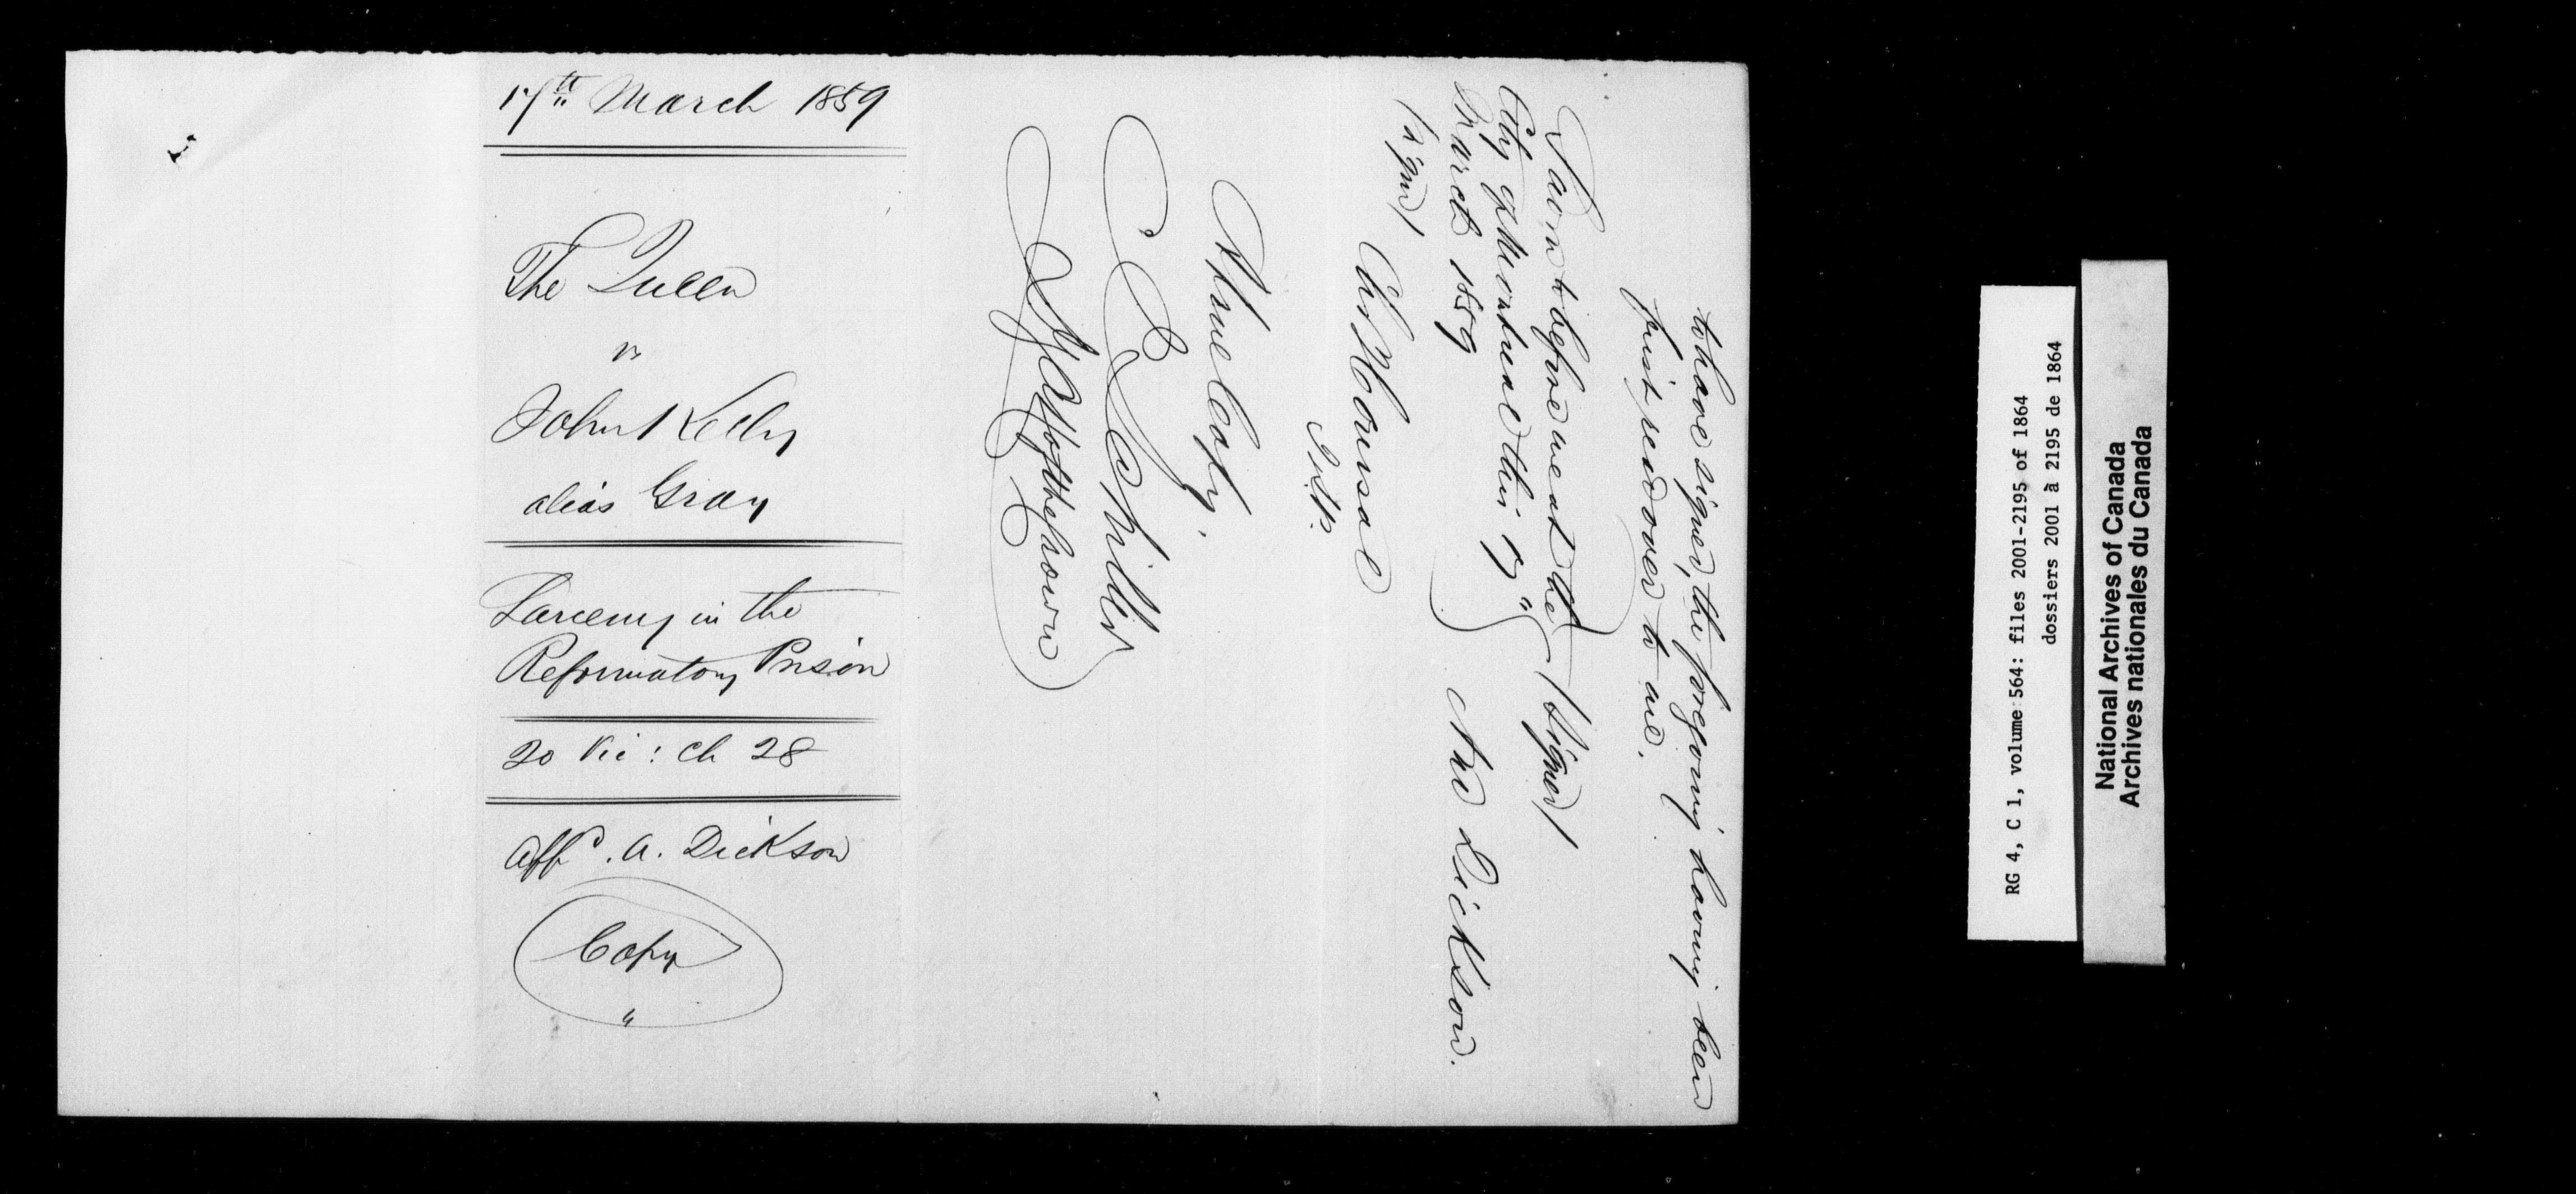 17th March 1859
The Queen
vs
John Kelly
alias Gray
Larceny in the
Reformatory Prison
20 Vic: ch 28
Affd. A. Dickson
Copy
to have signed, the foregoing having been
first read over to me.
Sworn to before me at the
City of Montreal this 17"
March 1859
(Signed)
And Dickson.
(signed)
Chs Coursol
True Copy.
Carter
RG 4, C 1, volume 564: files 2001-2195 of 1864
dossiers 2001 à 2195 de 1864
National Archives of Canada
Archives nationales du Canada